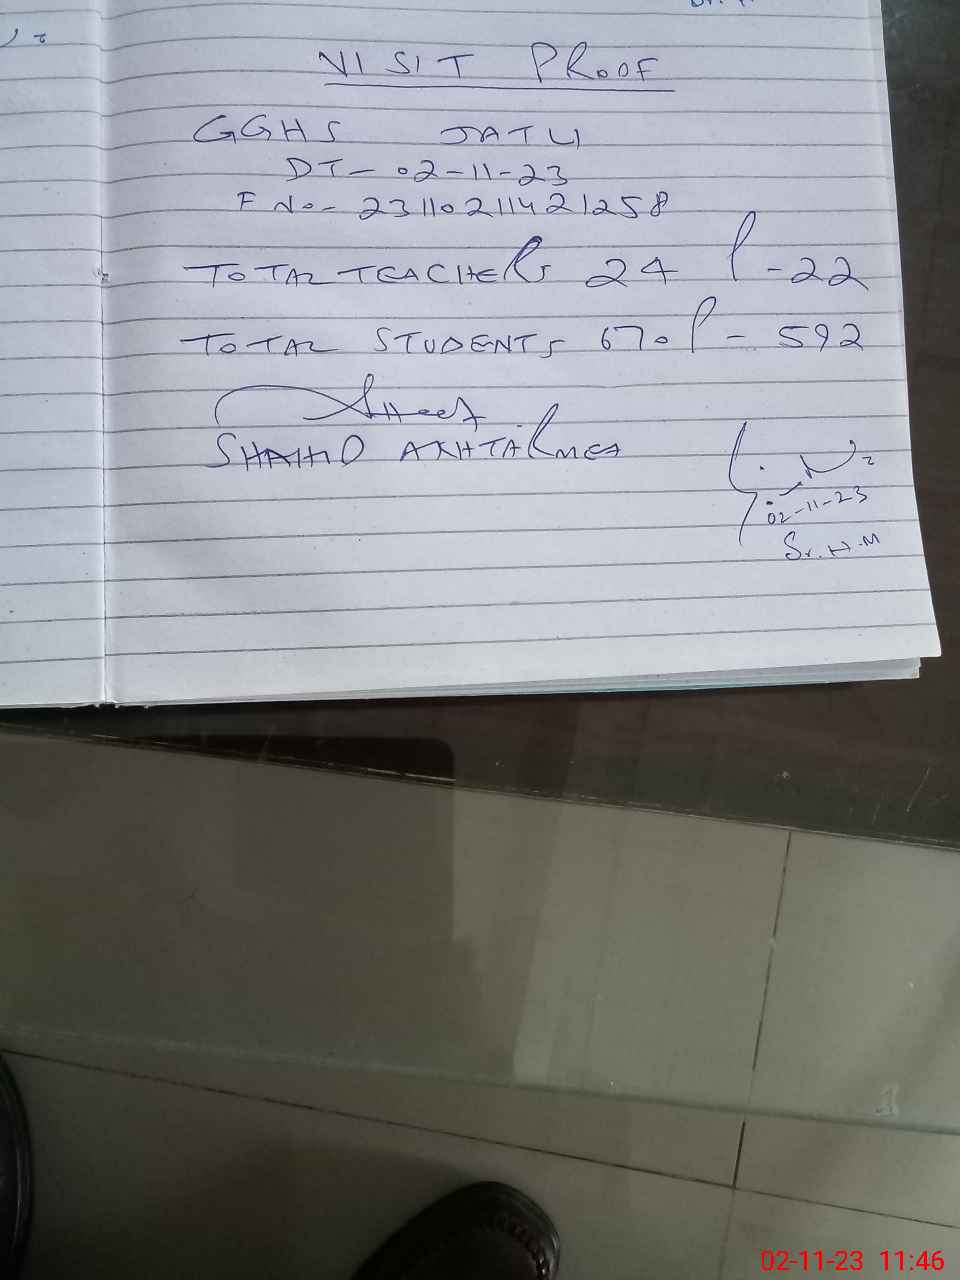 VISIT PROOF
GGHS JATLI
DT- 02-11-23
F No- 23110211421258
TOTAL TEACHERS 24 P-22
TOTAL STUDENTS 670 P-592
SHAHID AKHTAR MEA
02-11-23
Sr. H.M
02-11-23 11:46